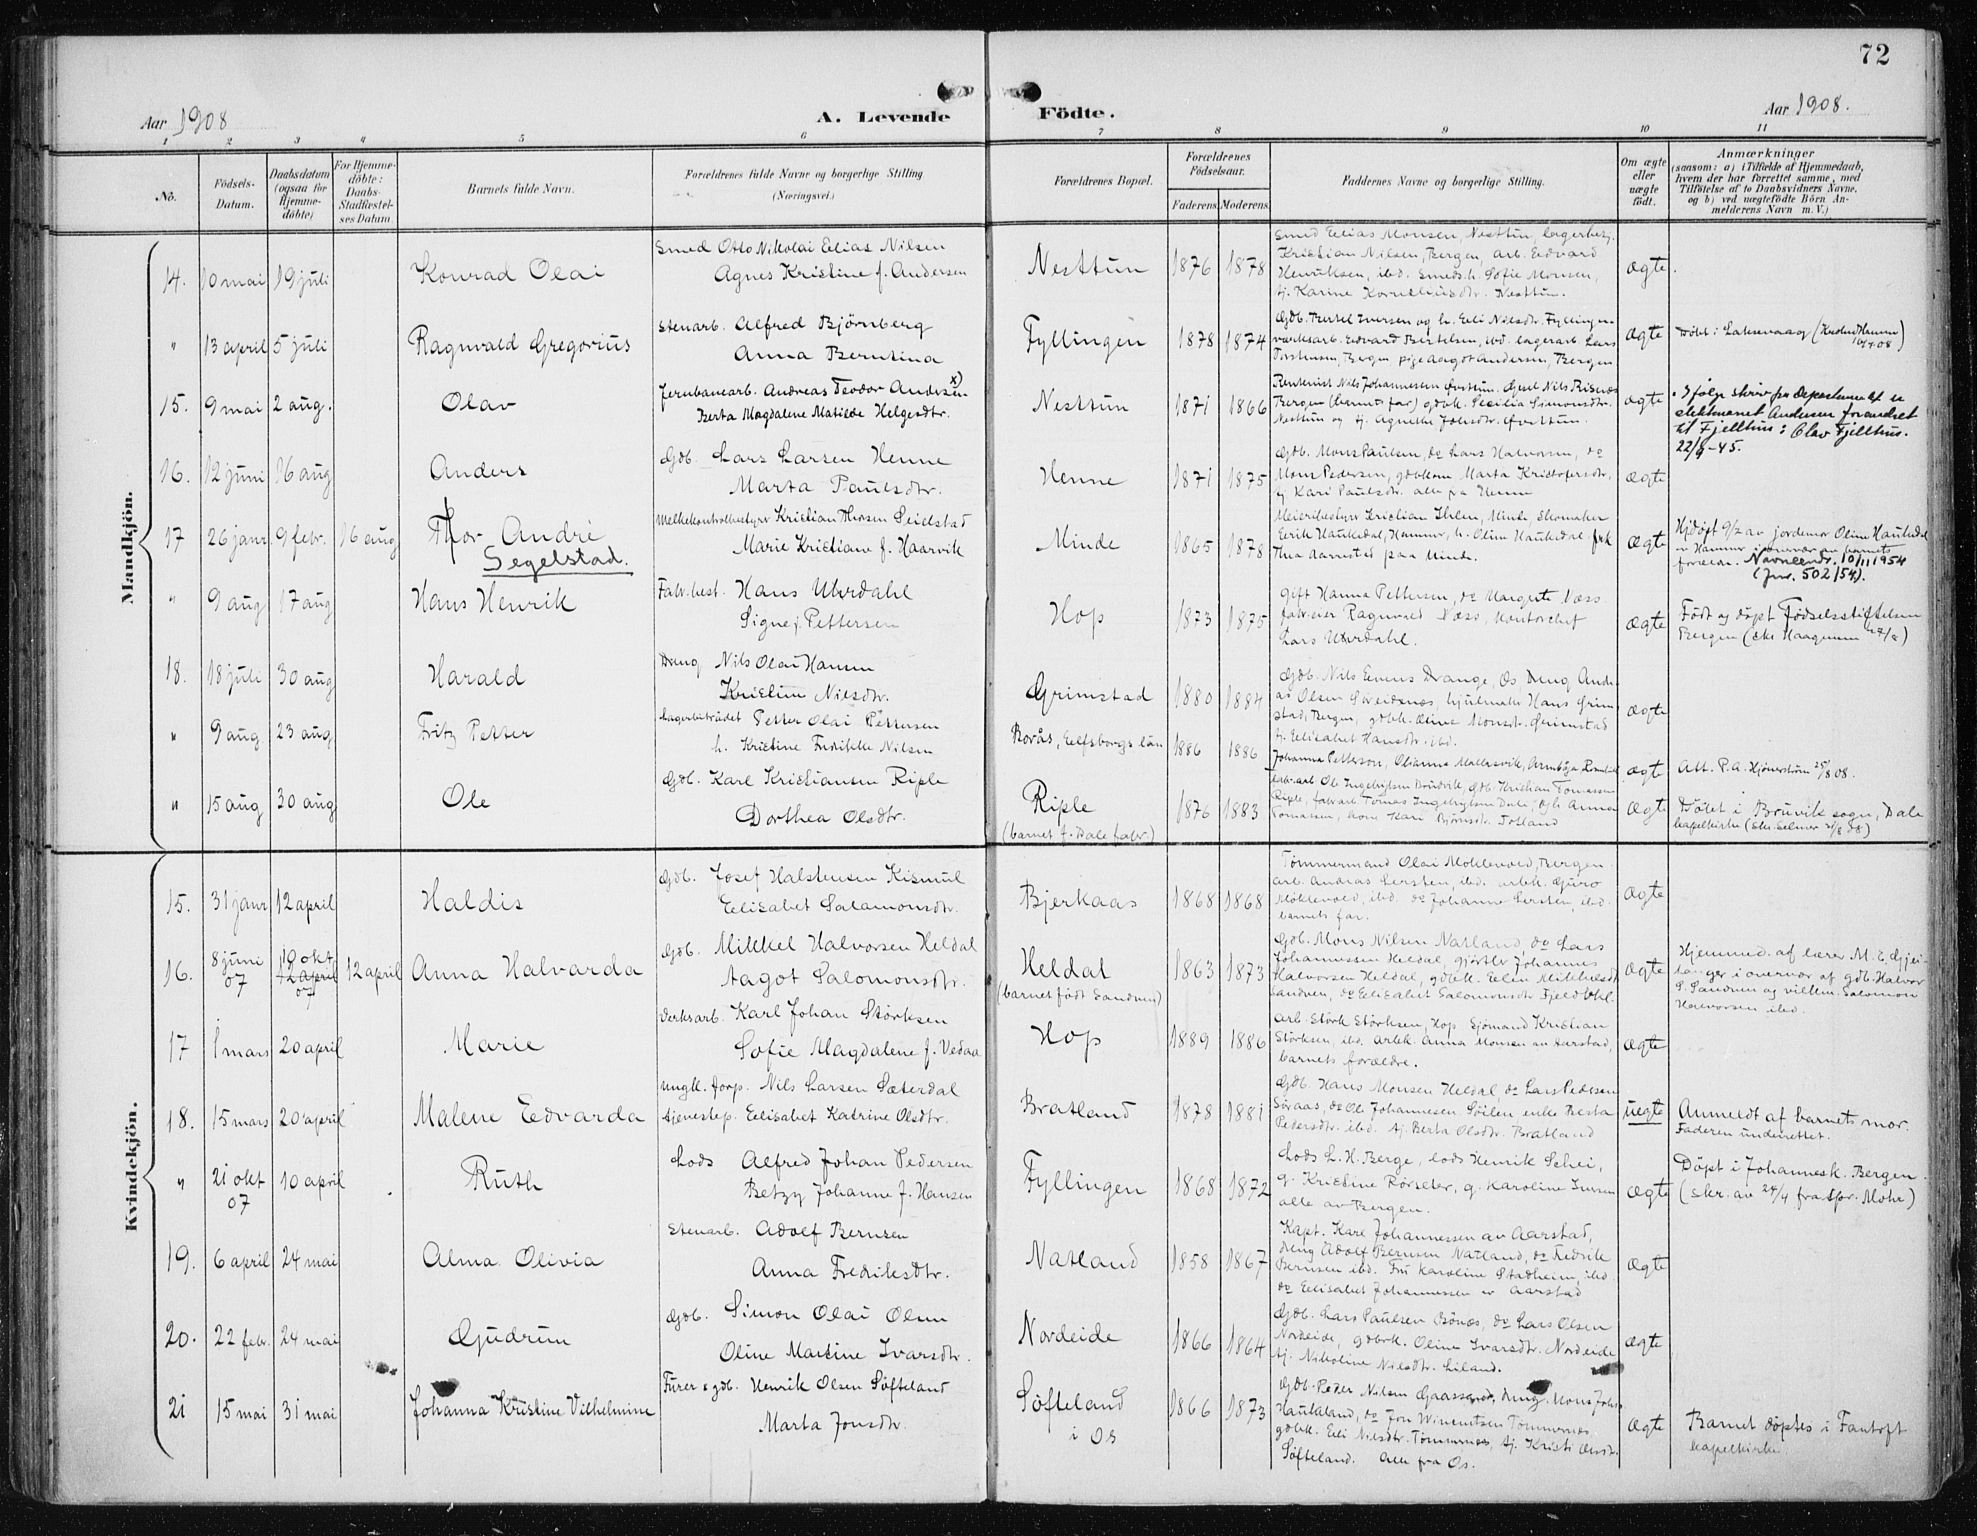 72
Aar 1908
A. Levende Födte.
Aar 1908.
1 2 3 4 5 6 7 8 9 10 11
No.
Födsels-Datum.
Daabsdatum (ogsaa for Hjemme-döbte)
For Hjemme-döbte: Daabs-Stadfæstel-ses Datum.
Barnets fulde Navn.
Forældrenes fulde Navne og borgerlige Stilling
(Næringsvei.)
Forældrenes Bopæl.
Forældrenes Födselsaar.
Faderens Moderens
Faddernes Navne og borgerlige Stilling.
Om ægte eller uægte födt.
Anmærkninger
(saasom: a) i Tilfælde af Hjemmedaab,
hvem der har forrettet samme, med
Tilföielse af to Daabsvidners Navne,
og b) ved uægtefödte Börn An-
melderens Navn m. V.)
Mandkjön.
14. 10 mai 19 juli Konrad Olai
Smed Otto Nikolai Elias Nilsen
Agnes Kristine f. Andersen
Nesttun 1876 1878
Smed Elias Monsen, Nesttun, lagerbetj.
Kristian Nilsen, Bergen, arb. Edvard
Henriksen, ibd. smedsh. Sofie Monsen,
tj. Karine Korneliusdtr. Nesttun.
ægte
" 13 april 5 juli Ragnvald Gregorius
Stenarb. Alfred Björnberg
Anna Berntina
Fyllingen 1878 1874
Gdb. Bertel Iversen og h. Eli Nilsdtr. Fyllingen
værksarb. Edvard Bertelsen, ibd. lagerarb. Lars
Torstensen, Bergen pige Aagot Andersen, Bergen
ægte
Döbt i Laksevaag
15. 9 mai 2 aug. Olav
Jernbanearb. Andreas Teodor Andersen x)
Berta Magdalene Matilde Helgesdtr.
Nesttun 1871 1866
Rentenist Nils Johannessen Övsttun. Gjesel Nils Risnæs
Bergen (barnets far) gdbk. Cecilia Simonsdtr.
Nesttun og tj. Agnethe Johsdtr. Övsttun.
ægte
Ifølge skriv fra Departementet er
slektsnavnet Andersen forandret
til Fjellhus: Olav Fjellhus.
22/9-45.
16. 12 juni 16 aug Anders
Gdb. Lars Larsen Henne
Marta Paulsdtr.
Henne 1871 1875
Gdb. Mons Paulsen, do Lars Halvorsen, do
Mons Pedersen, gdbkone Marta Kristofersdtr.
tj. Kari Paulsdtr. alle fra Henne
ægte
17 26 janr. 9 febr. 16 aug Thor André
Segelstad.
Melkekontrolbestyr Kristian Thorsen Seielstad
Marie Kristiane f. Haarvik
Minde 1865 1878
Meieribestyr Kristian Ihlen, Minde, Skomaker
Erik Haukedal, Hammer, h. Oline Haukedal frk
Thea Aarnstad paa Minde.
ægte
Hjdöpt 9/2 av jordmor Oline Haukedal
Hammer i overvær av barnets
foreldr. Navneendr. 10/11 1954
(Jnr. 502/54).
" 9 aug 17 aug Hans Henrik
Fabr.best. Hans Uhrdahl
Signe f. Pettersen
Hop 1873 1875
gift Hanna Pettersen, do Margrete Næss
fabreier Ragnvald Næss, Kontorchef
Lars Uhrdahl.
ægte
Födt og döpt Födselsstiftelsen
Bergen
18. 18 juli 30 aug Harald
Dreng Nils Olai Hansen
Kristine Nielsdtr.
Grimstad 1880 1884
Gdb. Nils Evens Drange, Os, Dreng Andre-
as Olsen Skeidsnæs, hjulmaker Hans Grim-
stad, Bergen, gdbk. Oline Monsdtr. Grimstad
tj. Elisabet Hansdtr. ibd.
ægte
" 9 aug 23 aug Fritz Petter
Lagerbiträdet Petter Olai Pettersen
h. Kristine Fredrikke Nilsen
Borås, Elfsborgs län 1886 1886
Johanna Petterson,
ægte
Att. P.A. Hjönerström 25/8 08.
" 15 aug 30 aug Ole
Gdb. Karl Kristiansen Riple
Dorthea Olsdtr.
Riple
(barnet f. Dale fabr.) 1876 1883
fabr.arb Ole Ingebrigtsen Bruvik, Gdb. Kristian Tomassen
Riple, fabrarb. Tomas Ingebrigtsen Dale, Gjh. Anna
Tomassen, kone Kari Björnsdtr. Tolland
ægte
Döbt i Bruvik sogn, Dale
kapelkirke
Kvindekjön.
15. 31 janr 12 april Haldis
Gdb. Josef Halstensen Kismul
Elisabet Salamonsdtr.
Bjerkaas 1868 1868
Tømmermand Olai Moldevold, Bergen
arb. Andreas Sersten, ibd. arbk. Guro
Moldevold, ibd. do Johanne Sersten, ibd.
barnets far.
ægte
16. 8 juni 07 19 okt 12 april 07 12 april Anna Halvarda
Gdb. Mikkel Halvorsen Heldal
Aagot Salomonsdtr.
Heldal
(barnet født Sandven) 1863 1873
Gdb. Mons Nilsen Natland, do Lars
Johannessen Heldal, gjörtler Johannes
Halvorsen Heldal, gdbk. Elen Mikkelsdtr
Sandven, do Elisabet Salomonsdtr Fjeld
ægte
Hjemmed. af lærer M. E. Gjei-
langer i overvær af gdb. Halvor
S. Sandven og vikken Salomon
Halvorsen ibd.
17 1 mars 20 april Marie
Verksarb. Karl Johan Störksen
Sofie Magdalene f. Vedaa
Hop 1889 1886
arb. Störk Störksen, Hop Sjömand Kristian
Störksen, ibd. arbk. Anna Monsen av Harstad,
barnets forældre.
ægte
18. 15 mars 20 april Malene Edvarda
Ungk. forp. Nils Larsen Sæterdal
tjenestep. Elisabet Katrine Olsdtr.
Bratland 1878 1881
Gdb. Hans Monsen Heldal, do Lars Pedersen
Söraas, do Ole Johannesen Söilen enke Berta
Pedersdtr. ibd. tj. Berta Olsdtr. Bratland
uegte
Anmeldt af barnets mor.
Faderen underrettet.
" 21 okt 07 10 april Ruth
Lods Alfred Johan Pedersen
Betzy Johanne f. Hansen
Fyllingen 1868 1872
Lods L. H. Berge, lods Henrik Schei,
g. Kristine Rörseter, g. Karoline Iversen
alle av Bergen.
ægte
Döpt i Johannesk. Bergen.
(skr. av 24/4 fra spr. Mohr)
19. 6 april 24 mai Alma Olivia
Stenarb. Adolf Bernsen
Anna Fredriksdtr.
Natland 1858 1867
Kapt. Karl Johannessen av Aarstad,
dreng Adolf Bernsen Natland, do Fredrik
Bernsen ibd. Fru Karoline Stadheim, ibd.
do Elisabet Johannessen av Aarstad
ægte
20. 22 febr. 24 mai Gudrun
Gdb. Simon Olai Olsen
Oline Martine Ivarsdtr.
Nordeide 1866 1864
Gdb. Lars Paulsen Bönæs, do Lars Olsen
Nordeide, gdbrk. Oline Ivarsdtr. Nordeide
tj. Nikoline Nilsdtr. Liland.
ægte
21 15 mai 31 mai Johanna Kristine Vilhelmine
Furer & gdb. Henrik Olsen Söfteland
Marta Jonsdtr.
Söfteland
i Os 1866 1873
Gdb. Peder Nilsen Gaassand, dreng Mons Johs.
Haukaland, do Jon Winentsen Tömmernes
gdbk. Eli Nilsdtr. Tömmernes, tj. Kristi Olsdtr.
Söfteland. Alle fra Os.
ægte
Barnet döptes i Fantoft
kapelkirke.